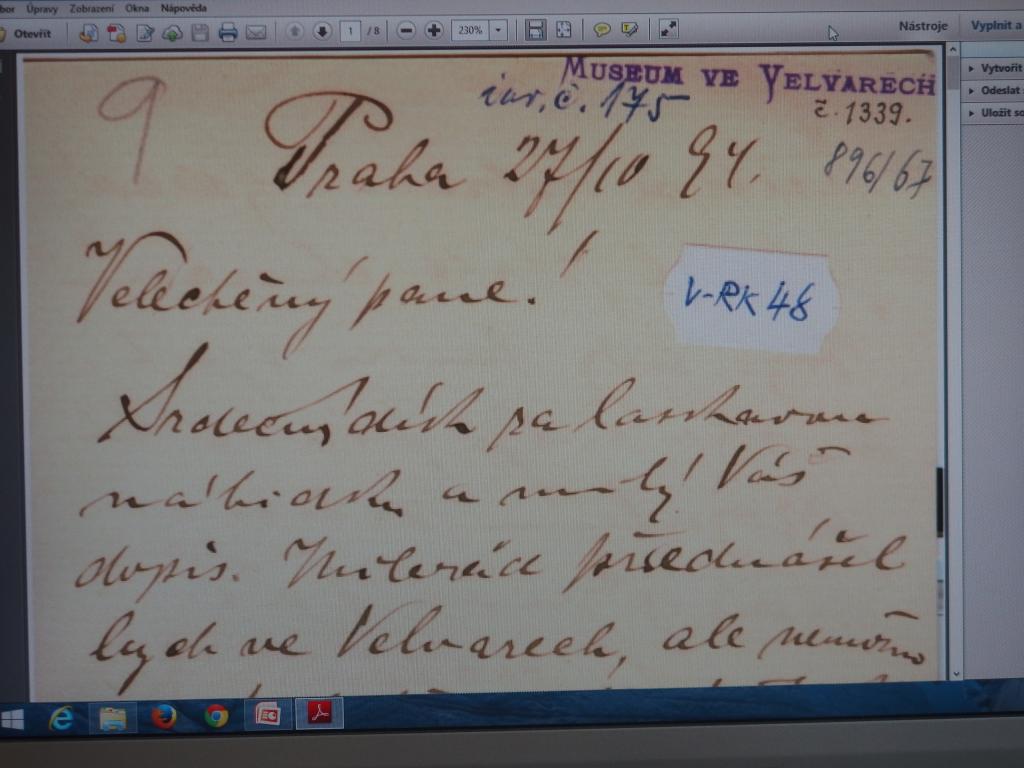 bor Úpravy Zobrazení Okna Nápověda
Otevřít 1 / 8 230% Nástroje Vyplnit a
Vytvořit
Odeslat
Uložit so
9
MUSEUM VE VELVARECH
inv. č. 175
č. 1339.
Praha 27/10 94.
896/67
Velectěný pane!
V-RK 48
Srdečný dík za laskavou
nábidku a milý Váš
dopis. Milerád přednášel
bych ve Velvarech, ale nemožno